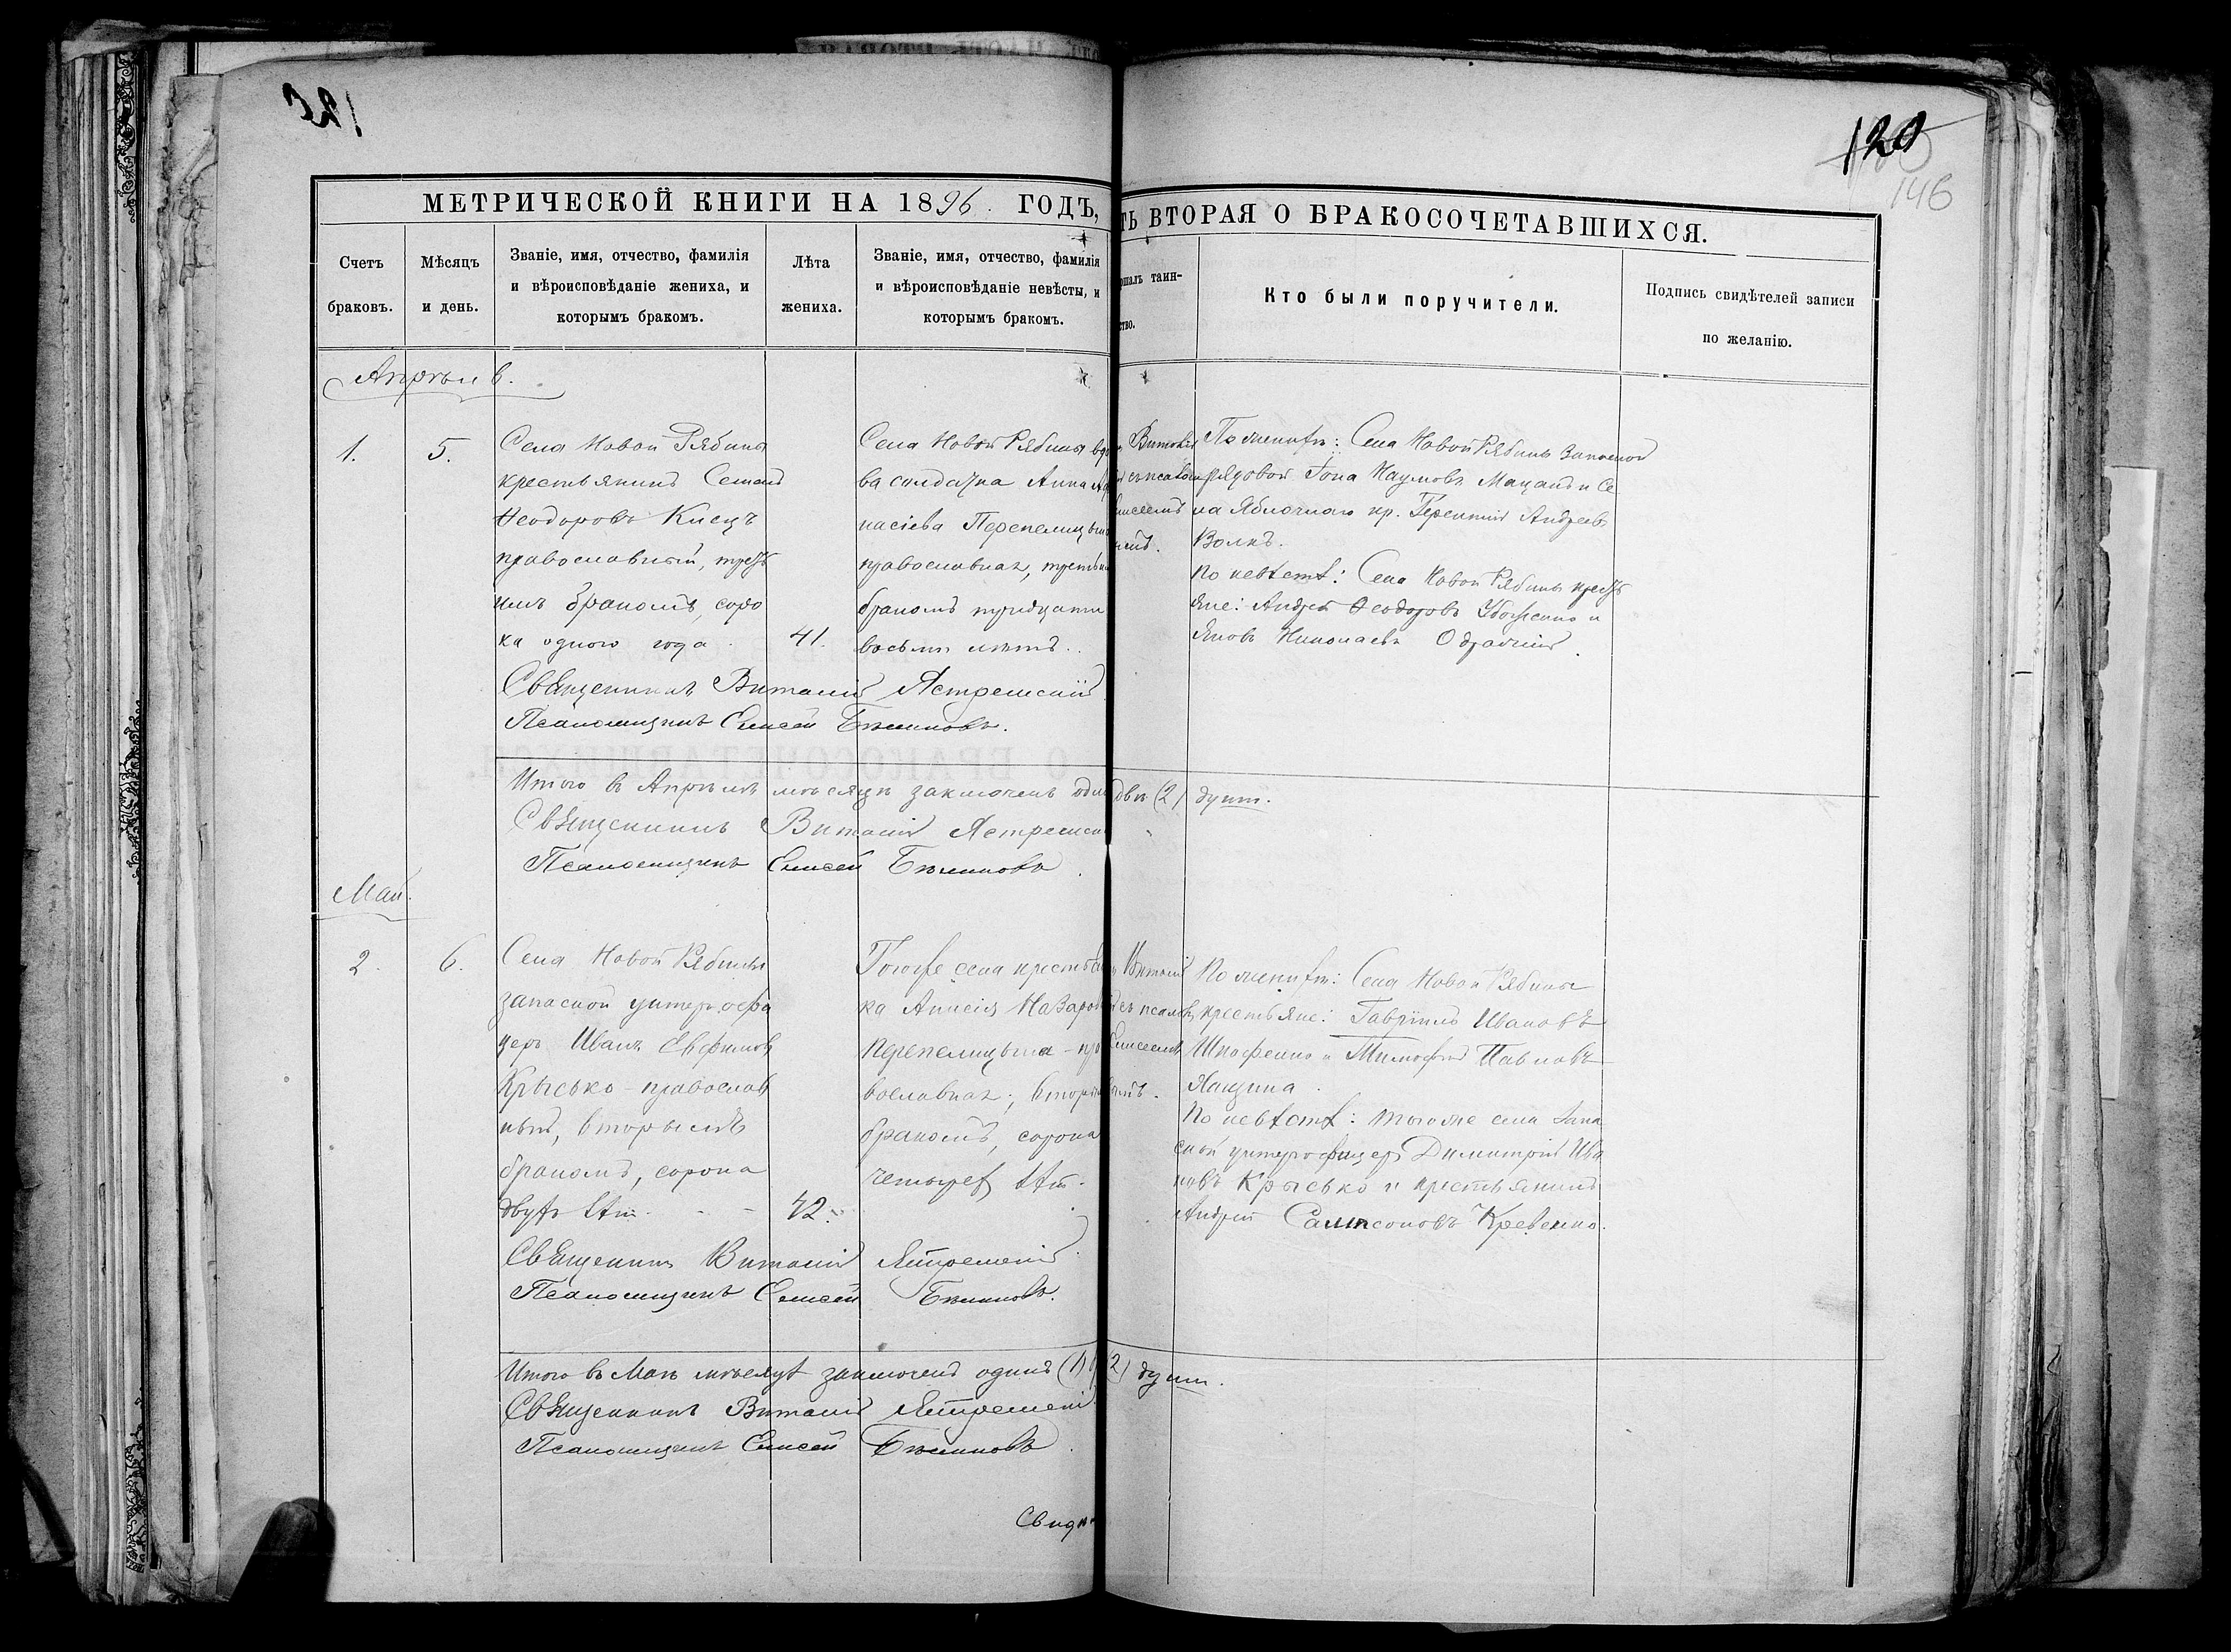 120
146
МЕТРИЧЕСКОЙ КНИГИ НА 1896 ГОДЪ,
ТЬ ВТОРАЯ О БРАКОСОЧЕТАВШИХСЯ.
Счетъ браковъ.
Мѣсяцъ и день.
Званіе, имя, отчество, фамилія
и вѣроисповѣданіе жениха, и
которымъ бракомъ.
Лѣта жениха.
Званіе, имя, отчество, фамилія
и вѣроисповѣданіе невѣсты, и
которымъ бракомъ.
ршалъ таин-
ство.
Кто были поручители.
Подпись свидѣтелей записи
по желанію.
Апрѣль
1.
5.
Села Новой Рябины
крестьянинъ
Ѳеодоровъ Киецъ
православный,
имъ бракомъ, соро
ка одного года
41.
Села Новой Рябины вдо
ва солдатка Анна
насіева Перепелицына
православная, третьим
бракомъ тридцати
восьми лѣтъ.
Виталій
съ псалом
лисеемъ
По женихѣ: Села Новой Рябины Запасной
рядовой Іона Наумовъ Мацакъ и Се
ла Яблочнаго кр. Терентій Андреевъ
Волкъ.
По невѣстѣ: Села Новой Рябины крест
яне: Андрей Ѳеодоровъ Убоженко и
Яковъ Николаевъ
Священникъ Виталій Ястремскій
Псаломщикъ Елисей Бѣликовъ.
Итого въ Апрѣлѣ мѣсяцѣ заключенъ оди
двѣ (2) душ.
Священникъ Виталій Ястремск
Псаломщикъ Елисей Бѣликовъ
Май.
2.
6.
Села Новой Рябины
запасной унтеръ-офи
церъ Иванъ Евфимовъ
Крысько - православ
ный, вторымъ
бракомъ, сорока
двухъ лѣтъ
42.
Тогоже села крестья
ка Анисія Назаров
Перепелицына - пра
вославная; вторым
бракомъ, сорока
четырех лѣт.
Виталій
съ псалом
Елисеемъ
По женихѣ: Села Новой Рябины
крестьяне: Гавріилъ Ивановъ
и Тимофей Павловъ
По невѣстѣ: тогоже села запа
сной унтерофицеръ Димитрій Ива
новъ Крысько и крестьянинъ
Андрей Сампсоновъ Кревенко.
Священникъ Виталій Ястремскій
Псаломщикъ Елисей Бѣликовъ.
Итого въ Маѣ мѣсяцѣ заключенъ одинъ (1)
2) душ.
Священникъ Виталій Ястремскій
Псаломщикъ Елисей Бѣликовъ
Свидѣ